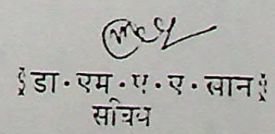 {डा॰ एम॰ ए॰ ए॰ खान}
सचिव